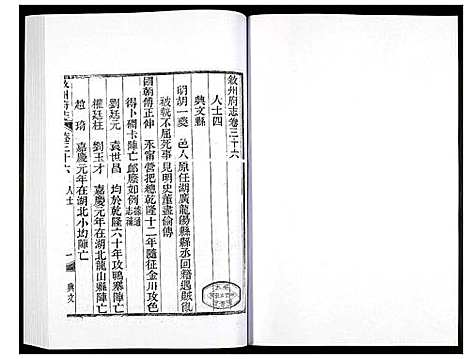 敘州府志卷三十六
人士四
興文縣
明胡一夔 邑人 原任湖廣龍陽縣縣丞回籍遇賊徒
被執不屈死事見明史董盡倫傳
國朝傅正伸 永甯營把總乾隆十二年隨征金川攻色
得卜碉卡陣亡卹廕如例
劉廷元 袁世昌 均於乾隆六十年攻鴨寨陣亡
權廷柱 劉玉才 嘉慶元年在湖北龍山縣陣亡
趙琦 嘉慶元年在湖北小坳陣亡
敘州府志 卷三十六 人士 一 興文